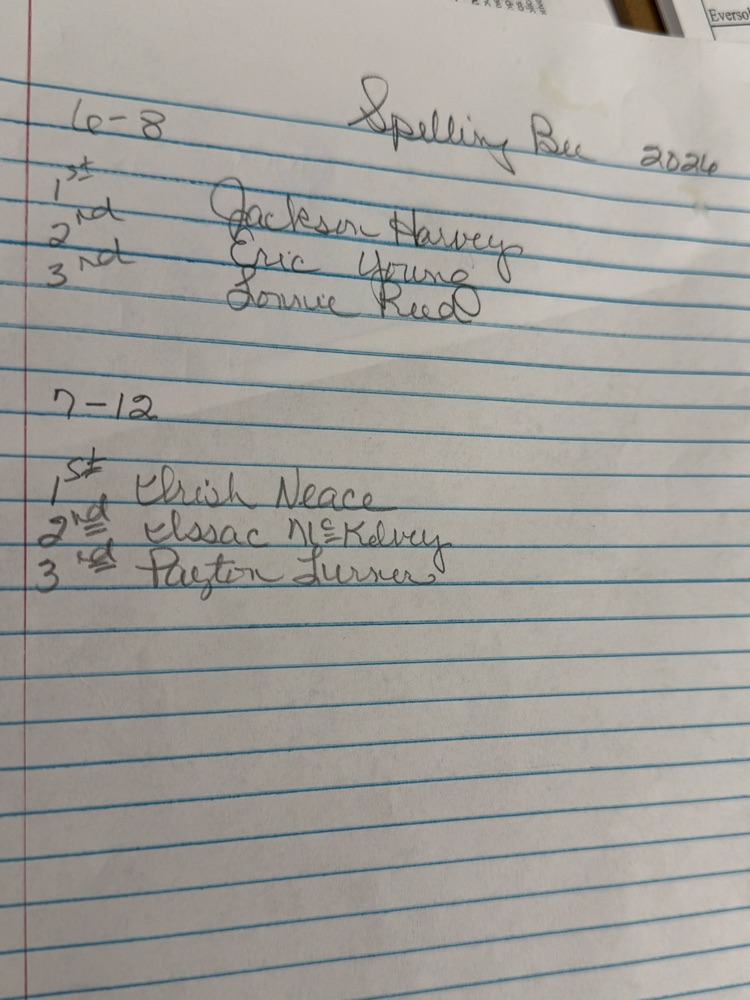 Everso
6-8 Spelling Bee 2026
1st Jackson Harvey
2nd Eric Young
3rd Lonnie Reed
7-12
1st Neace
2nd McKelvey
3rd Payton Turner